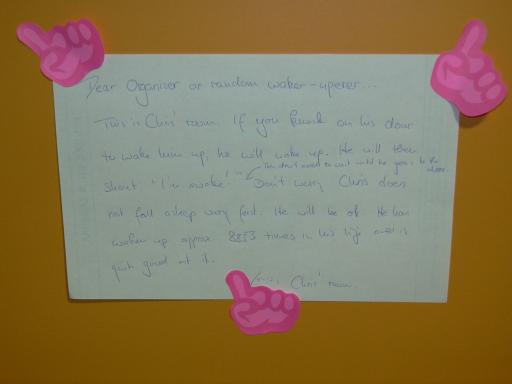 Dear Organiser or random waker-uperer...
This is Chris' room. If you knock on his door
to wake him up, he will wake up. He will then
shout "I'm awake!" Don't worry Chris does
You don't need to wait until he gets to the door.
not fall asleep very fast. He will be ok. He has
woken up approx 8853 times in his life and is
quite good at it.
Chris' room.